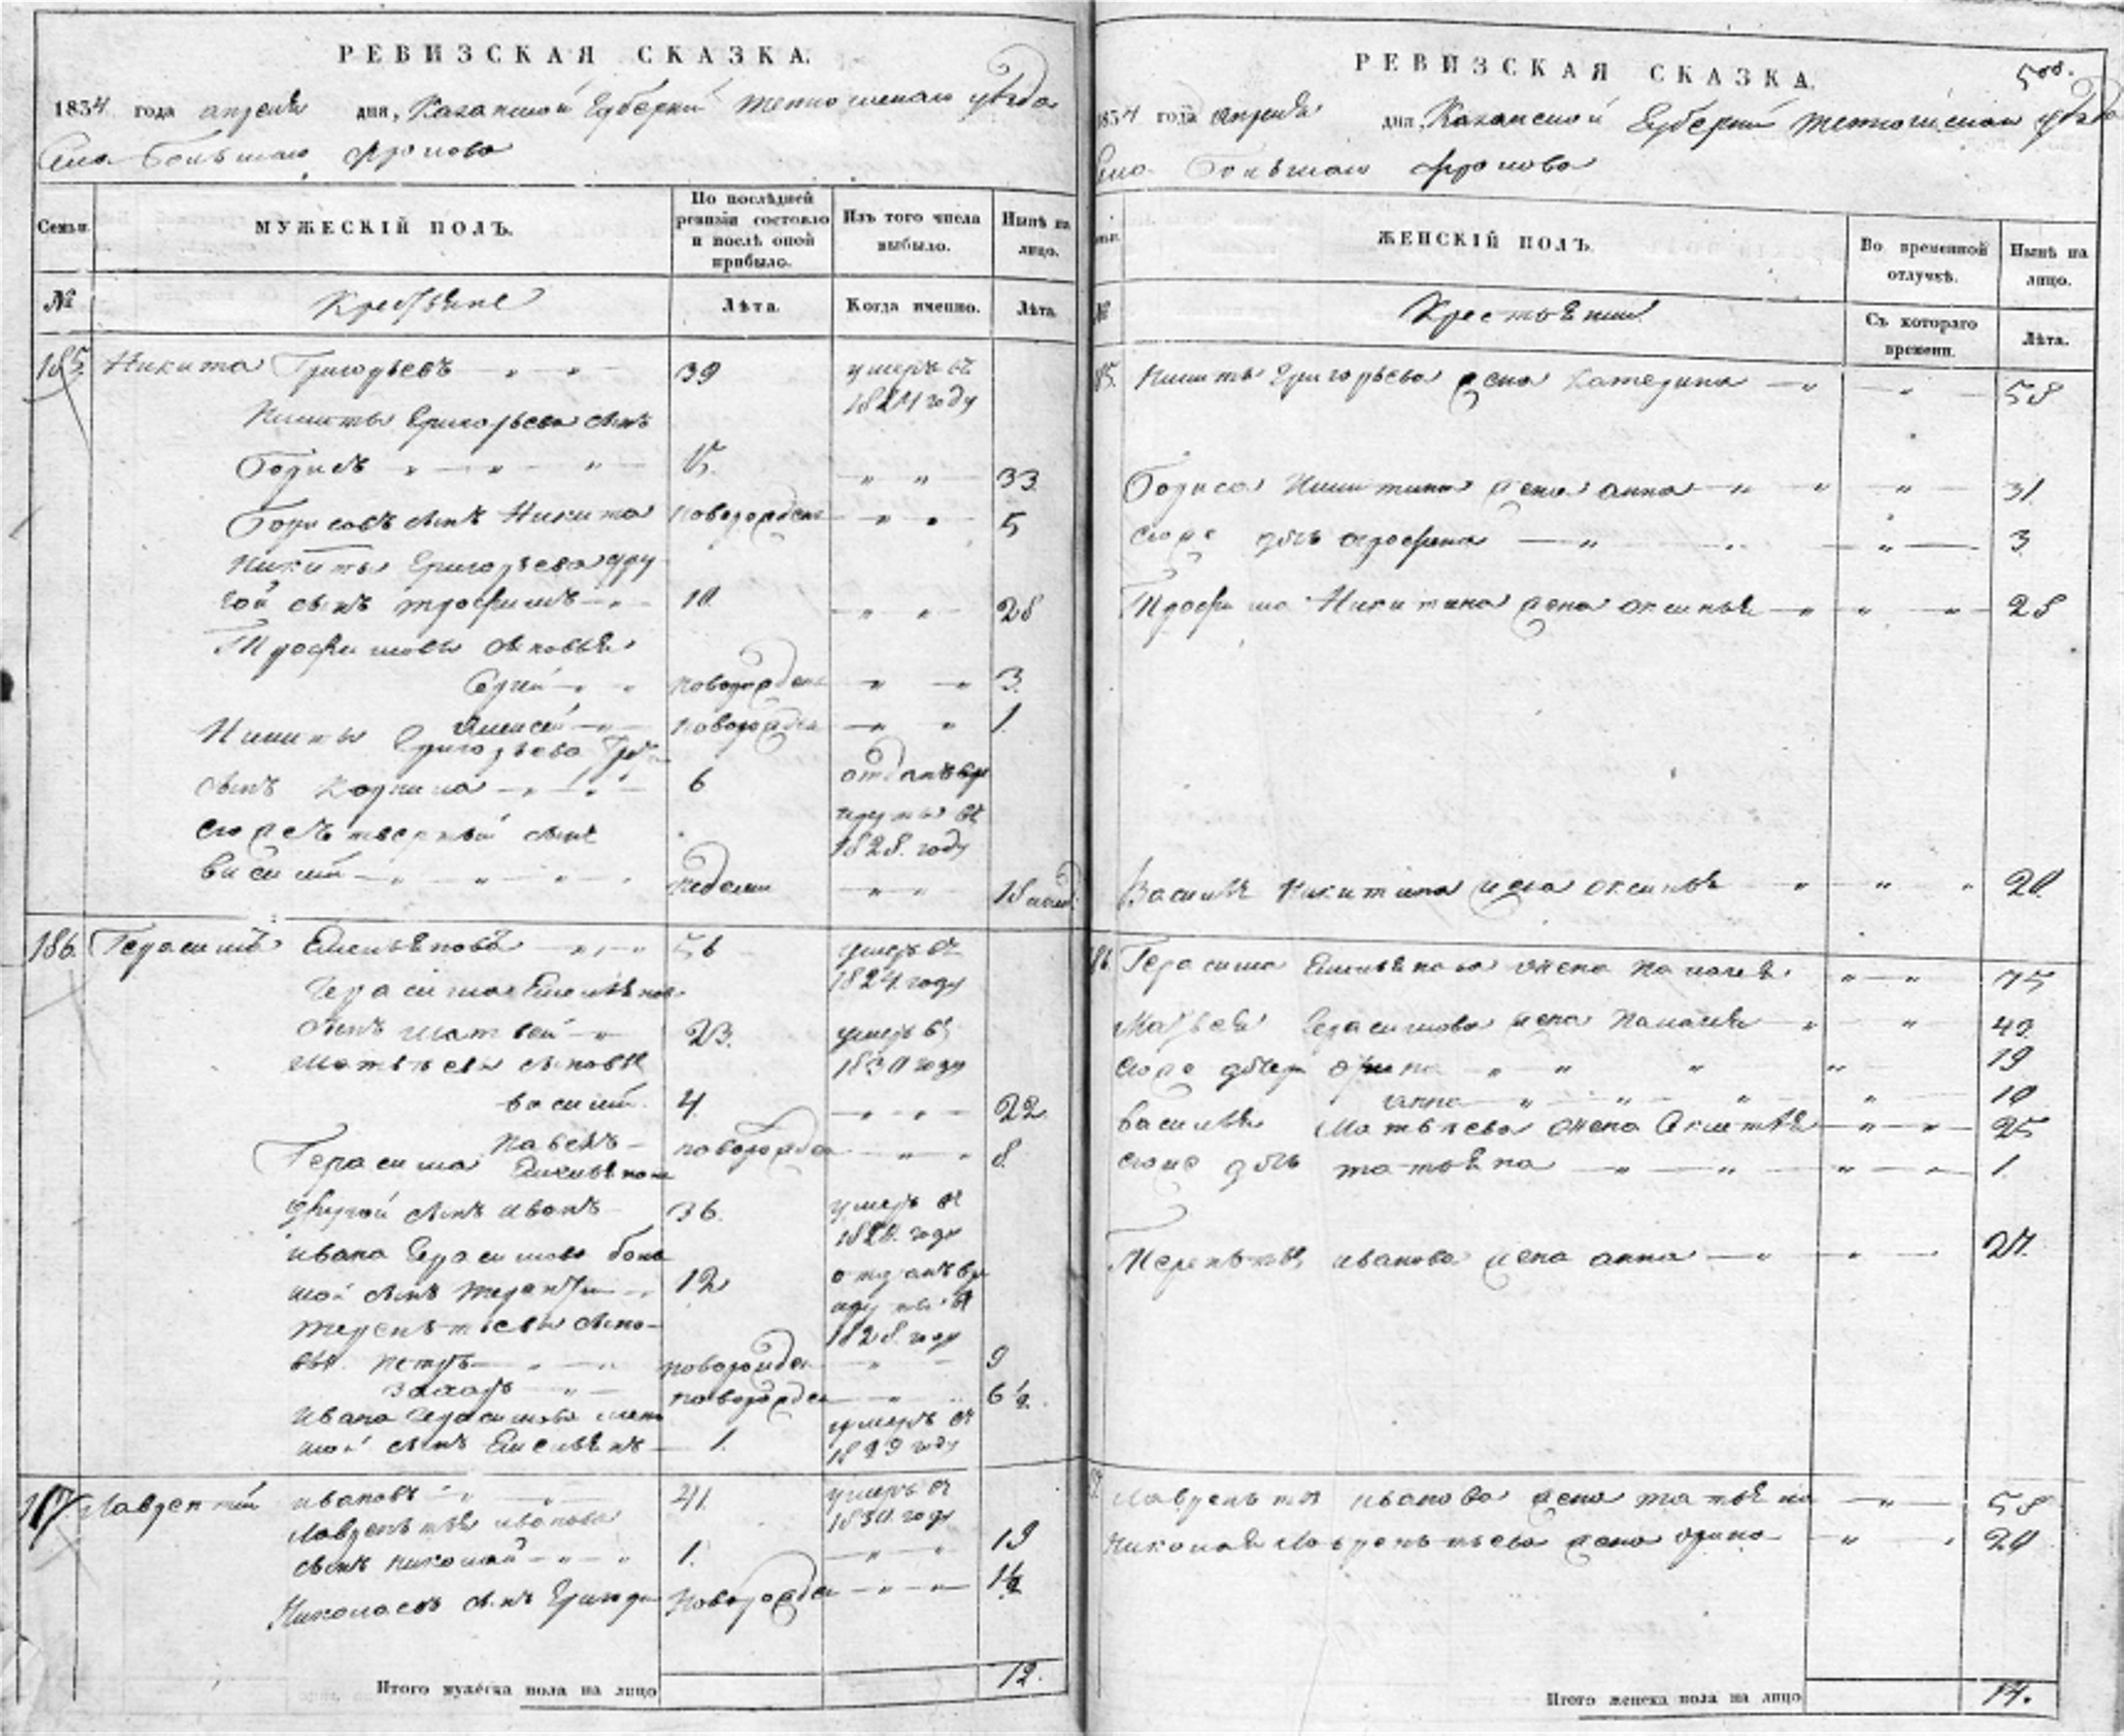 РЕВИЗСКАЯ СКАЗКА.
1834 года апреля дня, Казанской Губернии уезда
Села Большаго Фролова
Семьи.
МУЖЕСКІЙ ПОЛЪ.
По послѣдней ревизіи состояло и послѣ оной прибыло.
Изъ того числа выбыло.
Нынѣ на лицо.
№
Крестьяне
Лѣта.
Когда именно.
Лѣта.
185. Никита Григорьевъ 39 умеръ въ
1824 году
Никиты Григорьева сынъ
Борисъ 15. 33
Борисовъ сынъ Никита новорожден 5
Никиты Григорьева дру
гой сынъ Трофимъ 10. 28
Трофимовы сыновья
новорожден 3.
Алексей новорожден 1.
Никиты Григорьева
сынъ Корнила 6 отданъ въ ре
круты въ
его же четвертый сынъ 1828. году
Василий недели 18
186. Герасимъ Емельяновъ 56 умеръ въ
1824. году
Герасима Емельянова
сынъ Матвей 23. умеръ въ
1830 году
Матвеевы сыновья
Василий 4 22.
Павелъ новорожден 8.
Герасима Емельянова
другой сынъ Иванъ 36. умеръ въ
году
Ивана Герасимова боль
шой сынъ Терентий 12 отданъ в ре
круты в
1828. году
Терентьевы сыно-
вья. Петръ новорожден 9
Захаръ новорожден 6 ½.
Ивана Герасимова мень
шой сынъ Емельянъ 1. умеръ въ
1829 году
187 Лаврентий Ивановъ 41. умеръ въ
1830. году
Лаврентья Иванова
сынъ Николай 1. 19
Николаевъ сынъ Григори новорожден 1½
Итого мужеска пола на лицо 12.
РЕВИЗСКАЯ СКАЗКА.
500.
1834 года апреля дня, Казанской Губернии уезда
Села Большаго Фролова
ЖЕНСКІЙ ПОЛЪ.
Во временной отлучкѣ.
Нынѣ на лицо.
№
Съ котораго времени.
Лѣта.
85. Никиты Григорьева жена Катерина 58
Бориса Никитина жена Анна 31.
его же дочь 3.
Трофима Никитина жена Аксинья 28
Василья Никитина жена Аксинья 20.
86. Герасима Емельянова жена Паладья 75
Матвея Герасимова жена 43.
его же дочери Орина 19
Анна 10
Василья Матвеева жена 25
его же дочь Татьяна 1.
Терентья Иванова жена Анна 27.
Лаврентья Иванова жена Татьяна 58
Николая Лаврентьева жена Орина 20
Итого женска пола на лицо 14.